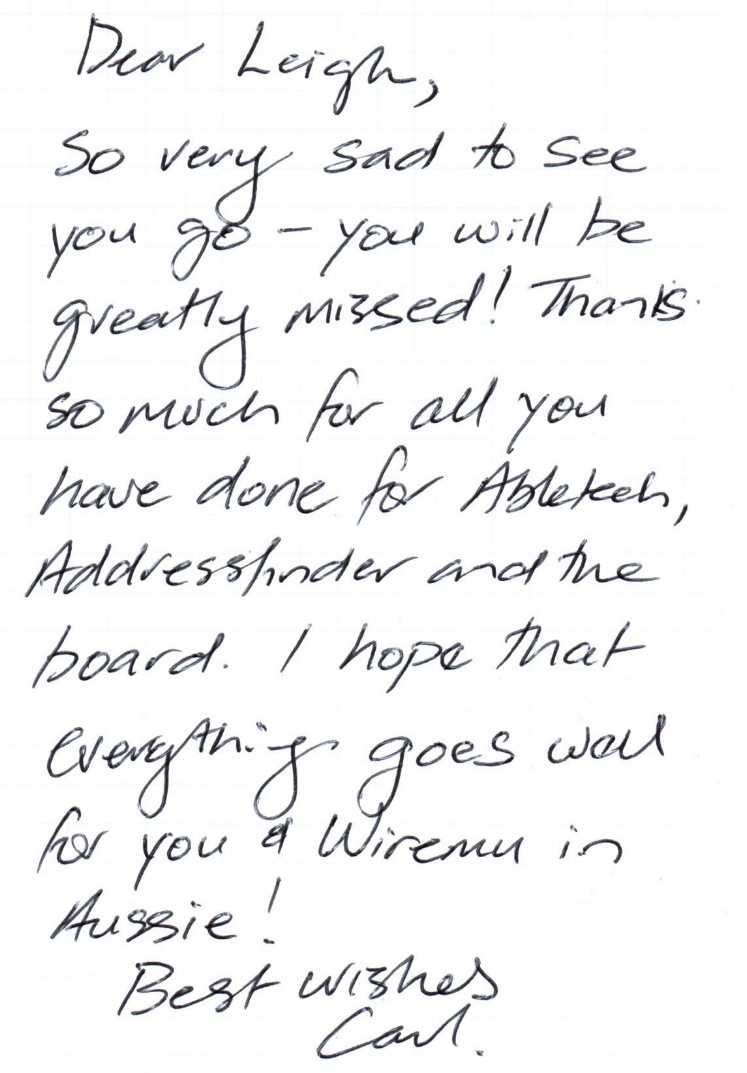 Dear Leigh,
So very sad to see
you go – you will be
greatly missed! Thanks
so much for all you
have done for Abletech,
Addressfinder and the
board. I hope that
everything goes well
for you & Wiremu in
Aussie!
Best wishes
Carl.